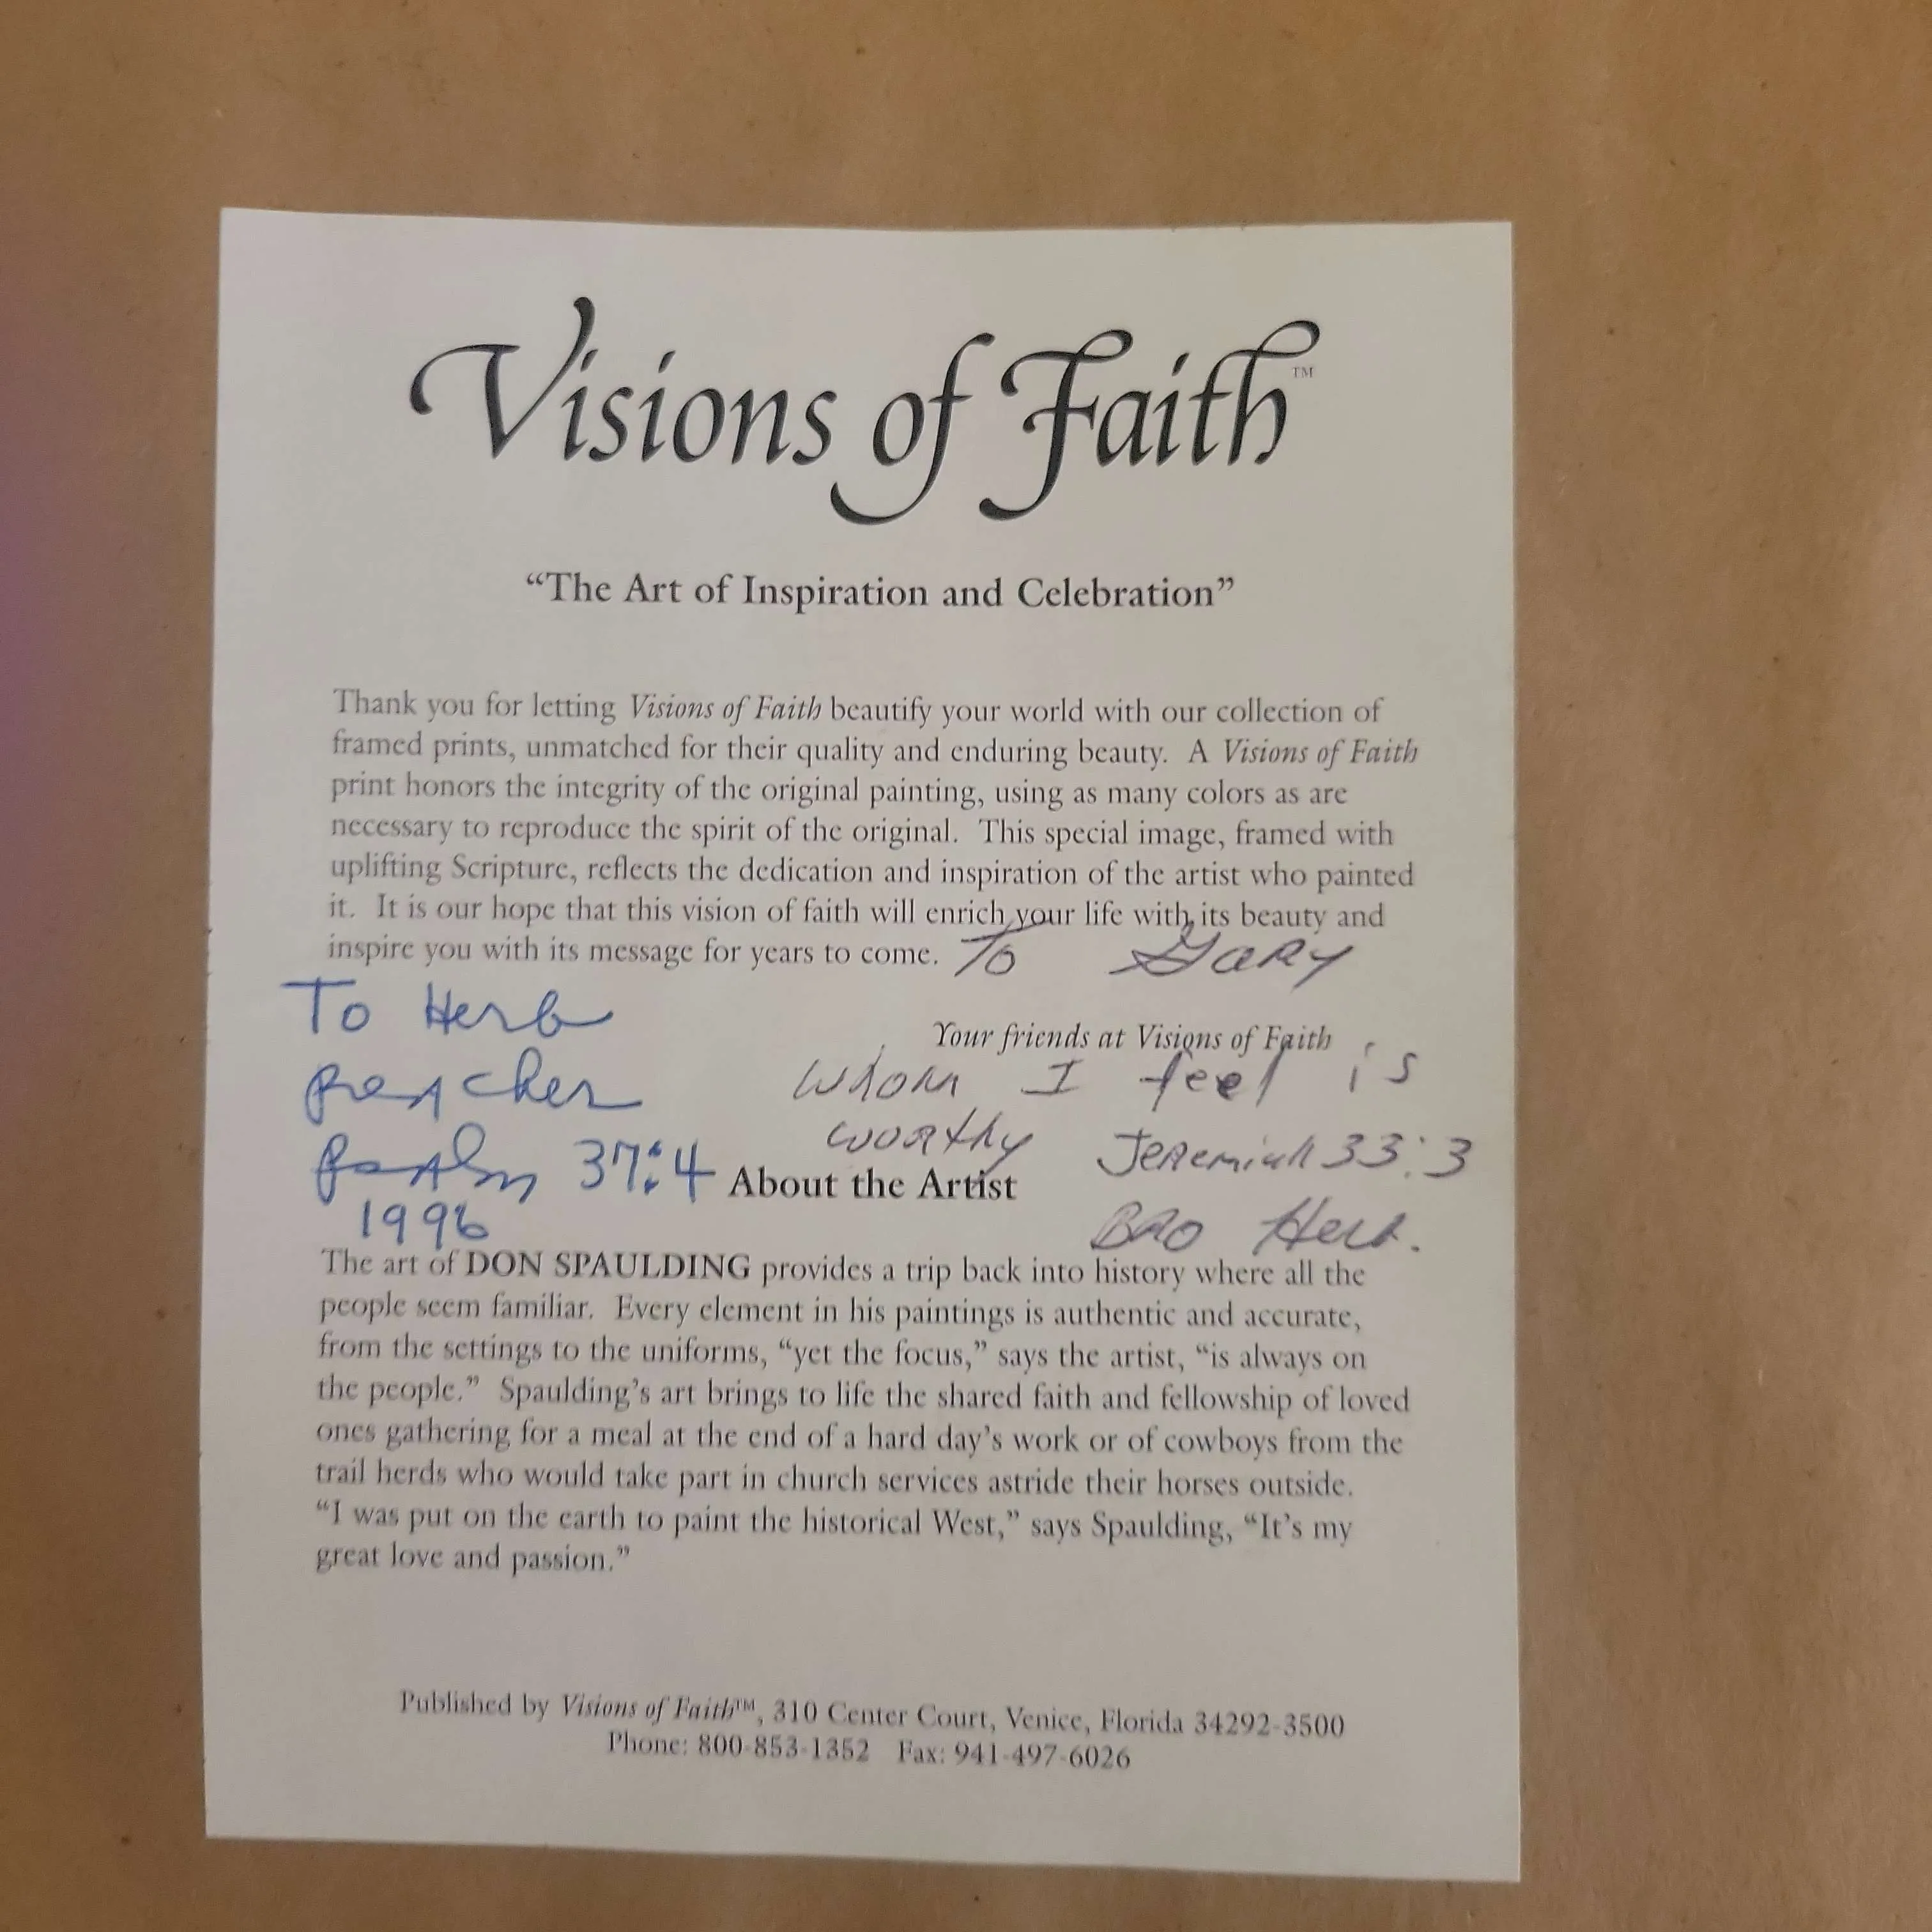 Visions of Faith™
“The Art of Inspiration and Celebration”
Thank you for letting Visions of Faith beautify your world with our collection of
framed prints, unmatched for their quality and enduring beauty. A Visions of Faith
print honors the integrity of the original painting, using as many colors as are
necessary to reproduce the spirit of the original. This special image, framed with
uplifting Scripture, reflects the dedication and inspiration of the artist who painted
it. It is our hope that this vision of faith will enrich your life with its beauty and
inspire you with its message for years to come.
To Gary
To Herb
Your friends at Visions of Faith
preacher
whom I feel is
worthy
Psalm 37:4
Jeremiah 33:3
About the Artist
1996
Bro Herb.
The art of DON SPAULDING provides a trip back into history where all the
people seem familiar. Every element in his paintings is authentic and accurate,
from the settings to the uniforms, “yet the focus,” says the artist, “is always on
the people.” Spaulding’s art brings to life the shared faith and fellowship of loved
ones gathering for a meal at the end of a hard day’s work or of cowboys from the
trail herds who would take part in church services astride their horses outside.
“I was put on the earth to paint the historical West,” says Spaulding, “It’s my
great love and passion.”
Published by Visions of Faith™, 310 Center Court, Venice, Florida 34292-3500
Phone: 800-853-1352 Fax: 941-497-6026